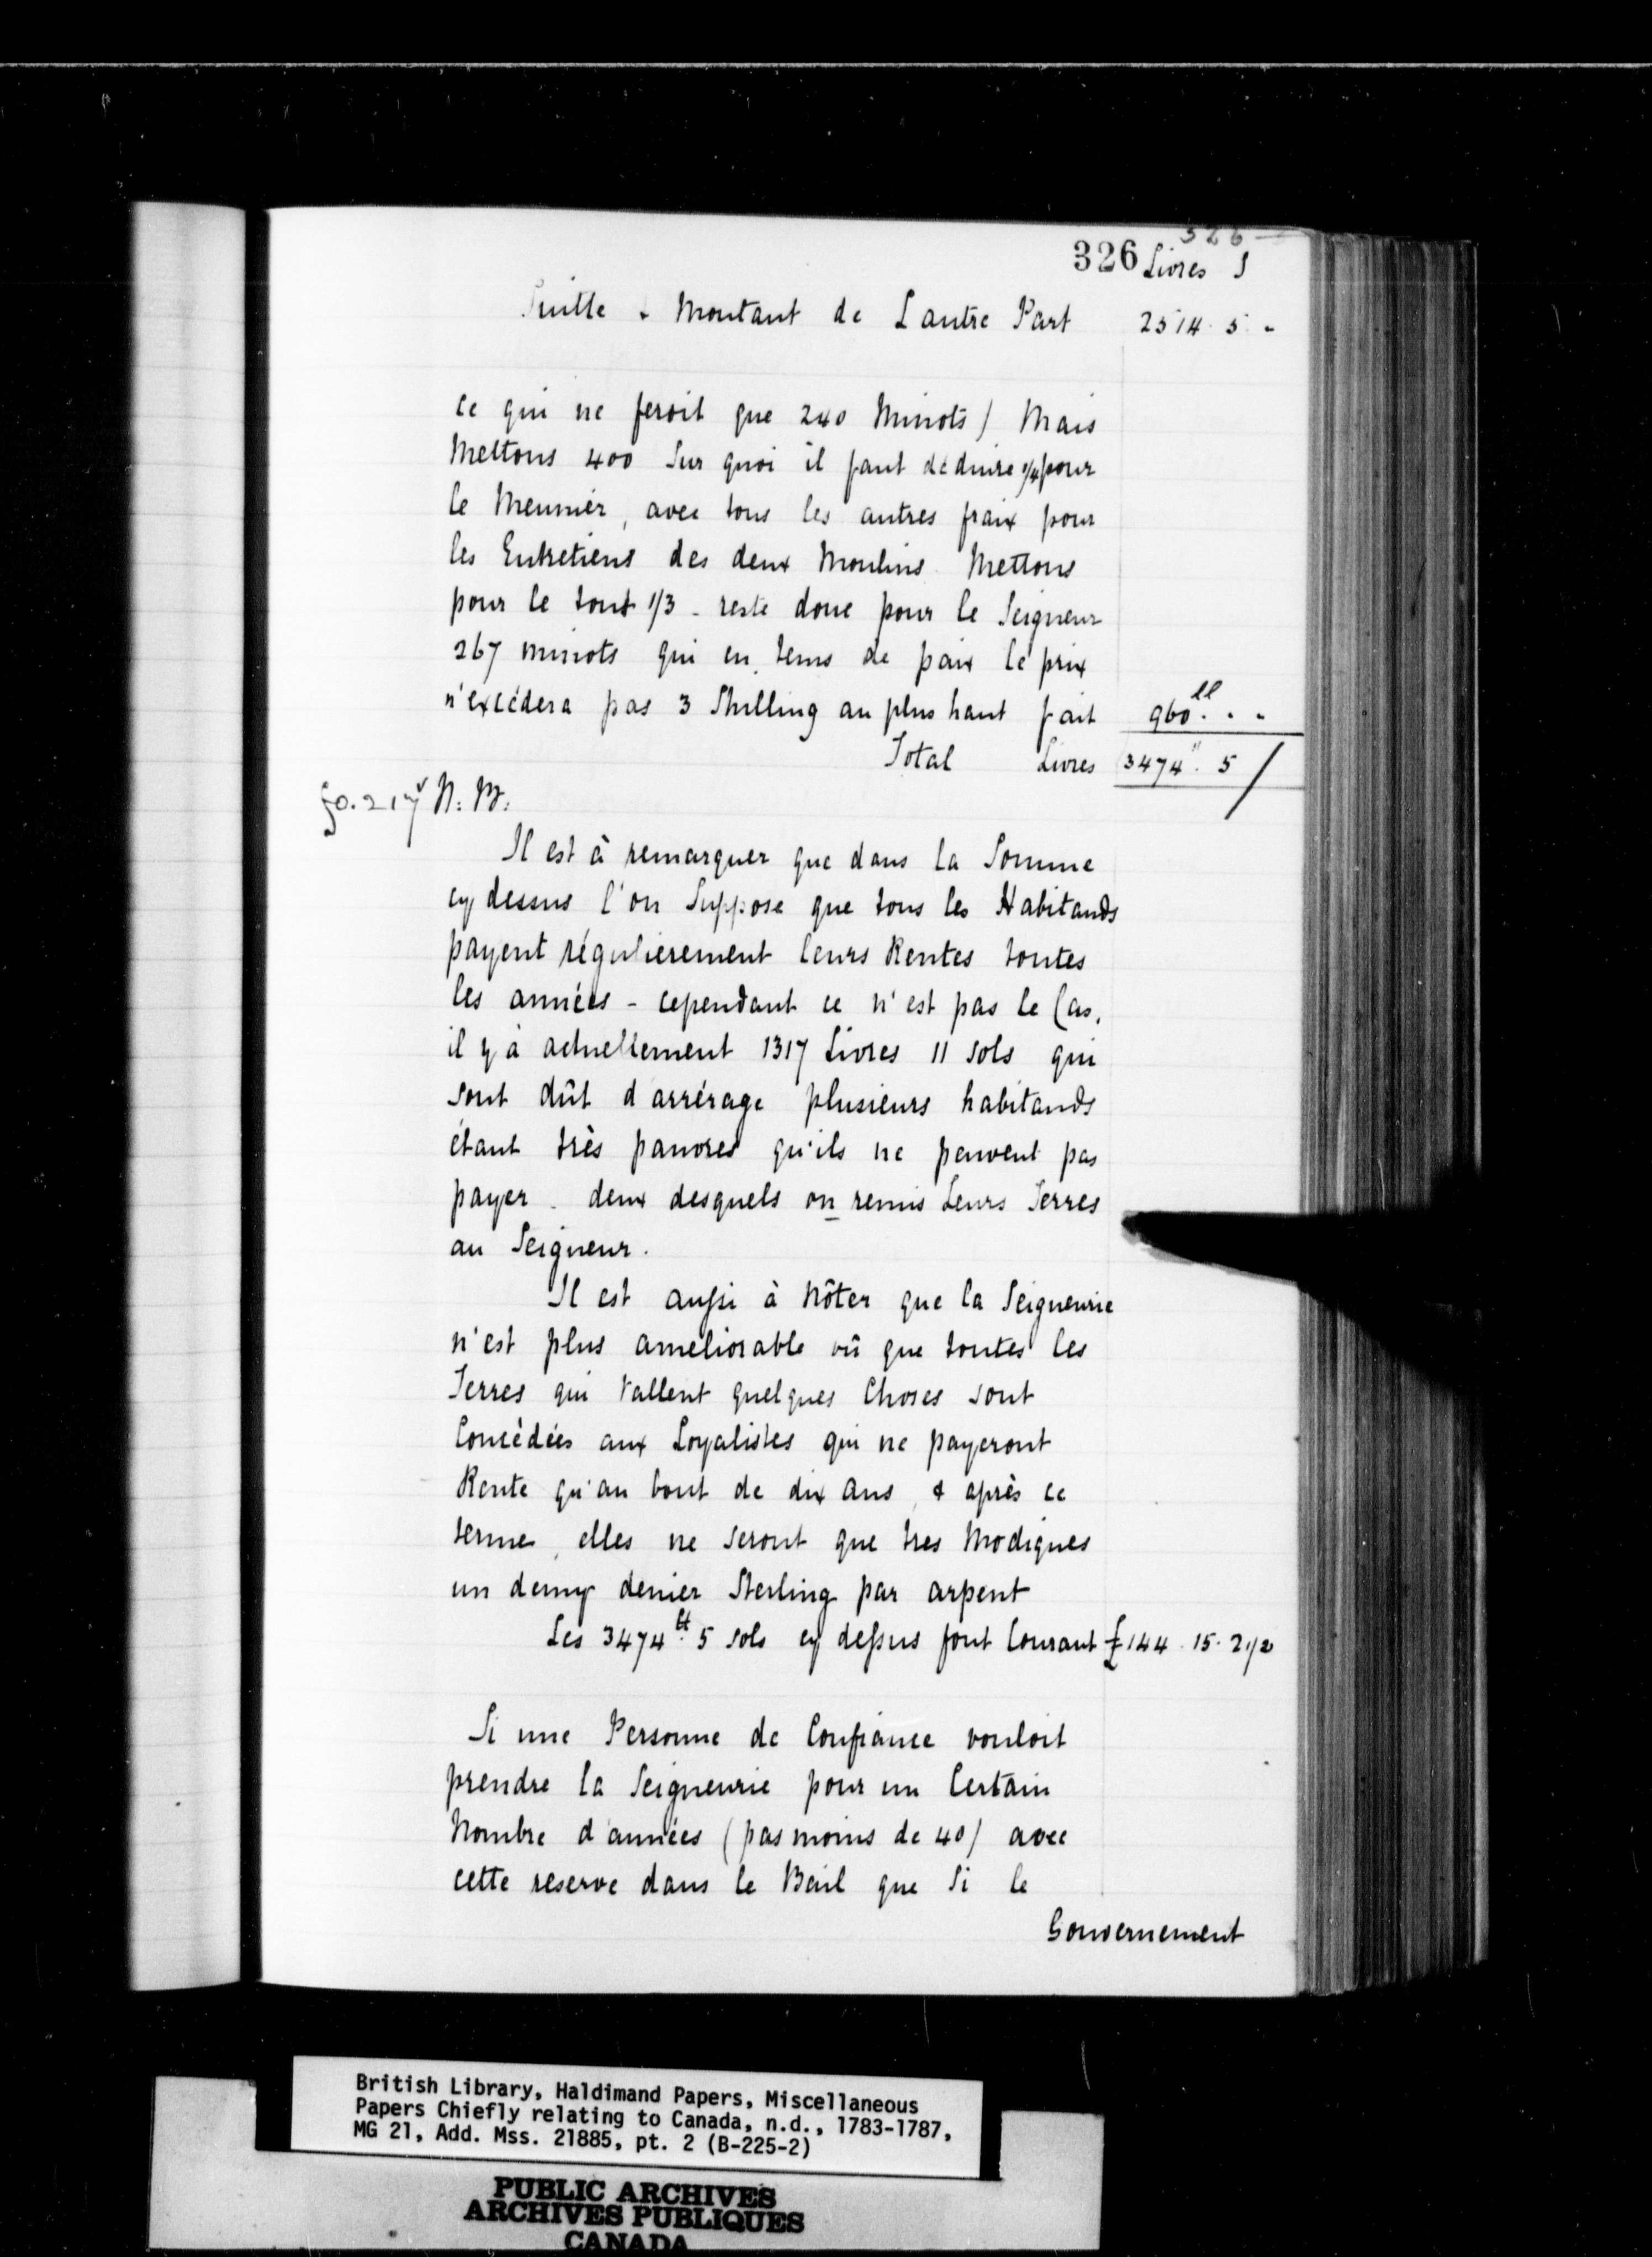 326
326
Livres S
Suitte & Montant de Lautre Part 2514. 5. -
ce qui ne feroit que 240 Minots) Mais
Mettons 400 Sur quoi il faut déduire 1/4 pour
le Meunier, avec tous les autres fraix pour
les Entretiens des deux Moulins Mettons
pour le tout 1/3 - reste donc pour le Seigneur
267 minots qui en tems de paix le prix
n'excédera pas 3 Shilling au plus haut fait 960ll. . -
Total Livres 3474" 5
fo. 217v N: B:
Il est à remarquer que dans la Somme
cy dessus l'on Suppose que tous les Habitands
payent régulierement leurs Rentes toutes
les années - cependant ce n'est pas le Cas,
il y à actuellement 1317 Livres 11 sols qui
sont dût d'arrérage plusieurs habitands
étant très pauvres qu'ils ne peuvent pas
payer - deux desquels on remis Leurs Terres
au Seigneur.
Il est aussi à Nôter que la Seigneurie
n'est plus ameliorable vû que toutes les
Terres qui Vallent quelques Choses sont
Concèdées aux Loyalistes qui ne payeront
Rente qu'au bout de dix Ans, & après ce
terme, elles ne seront que tres Modiques
un demy denier Sterling par arpent
Les 3474tt. 5 sols cy dessus font Courant £144. 15. 2 1/2
Si une Personne de Confiance vouloit
prendre la Seigneurie pour un Certain
Nombre d'années (pas moins de 40) avec
cette reserve dans le Bail que Si le
Gouvernement
British Library, Haldimand Papers, Miscellaneous
Papers Chiefly relating to Canada, n.d., 1783-1787,
MG 21, Add. Mss. 21885, pt. 2 (B-225-2)
PUBLIC ARCHIVES
ARCHIVES PUBLIQUES
CANADA